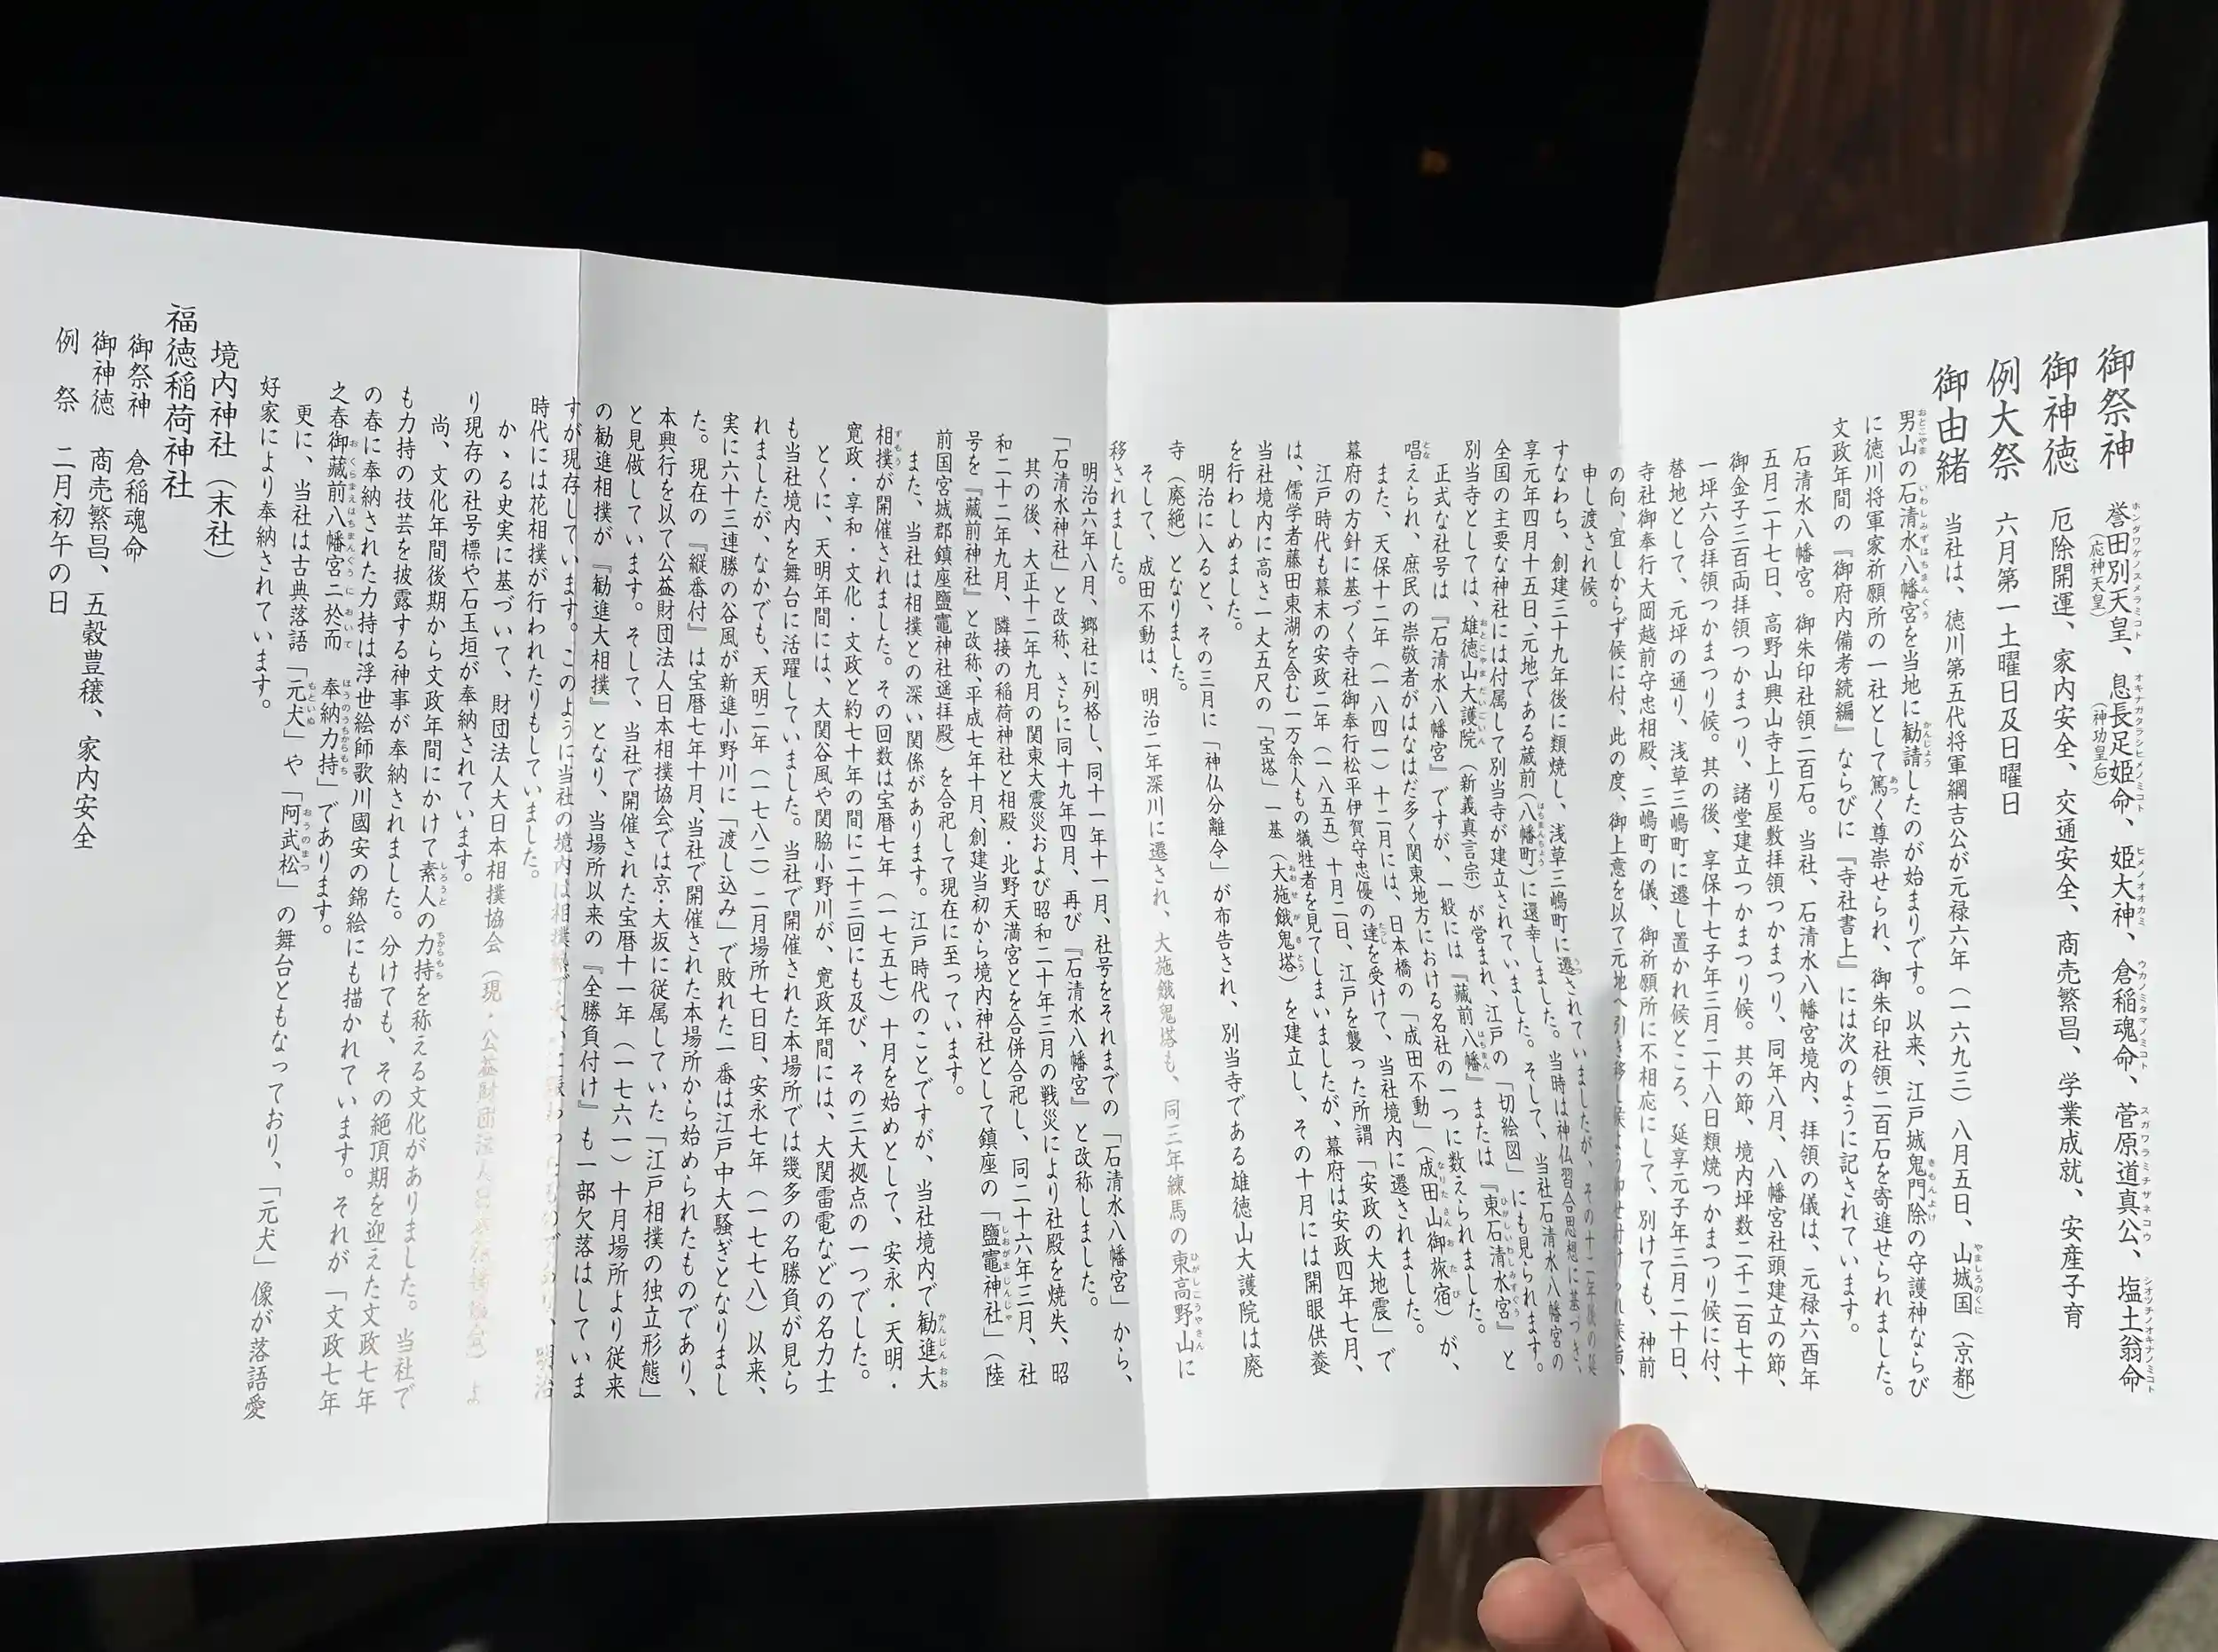 御祭神　誉田別天皇、息長足姫命、姫大神、倉稲魂命、菅原道真公、塩土翁命
（応神天皇）（神功皇后）
御神徳　厄除開運、家内安全、交通安全、商売繁昌、学業成就、安産子育
例大祭　六月第一土曜日及日曜日
御由緒　当社は、徳川第五代将軍綱吉公が元禄六年（一六九三）八月五日、山城国（京都）
男山の石清水八幡宮を当地に勧請したのが始まりです。以来、江戸城鬼門除の守護神ならび
に徳川将軍家祈願所の一社として篤く尊崇せられ、御朱印社領二百石を寄進せられました。
文政年間の『御府内備考続編』ならびに『寺社書上』には次のように記されています。
石清水八幡宮。御朱印社領二百石。当社、石清水八幡宮境内、拝領の儀は、元禄六酉年
五月二十七日、高野山興山寺上り屋敷拝領つかまつり、同年八月、八幡宮社頭建立の節、
御金子三百両拝領つかまつり、諸堂建立つかまつり候。其の節、境内坪数二千二百七十
一坪六合拝領つかまつり候。其の後、享保十七子年三月二十八日類焼つかまつり候に付、
替地として、元坪の通り、浅草三嶋町に遷し置かれ候ところ、延享元子年三月二十日、
寺社御奉行大岡越前守忠相殿、三嶋町の儀、御祈願所に不相応にして、別けても、神前
の向、宜しからず候に付、此の度、御上意を以て元地へ引き移し候よう仰せ付けられ候旨、
申し渡され候。
すなわち、創建三十九年後に類焼し、浅草三嶋町に遷されていましたが、その十二年後の延
享元年四月十五日、元地である蔵前（八幡町）に還幸しました。当時は神仏習合思想に基づき、
全国の主要な神社には付属して別当寺が建立されていました。そして、当社石清水八幡宮の
別当寺としては、雄徳山大護院（新義真言宗）が営まれ、江戸の「切絵図」にも見られます。
正式な社号は『石清水八幡宮』ですが、一般には『蔵前八幡』または『東石清水宮』と
唱えられ、庶民の崇敬者がはなはだ多く関東地方における名社の一つに数えられました。
また、天保十二年（一八四一）十二月には、日本橋の「成田不動」（成田山御旅宿）が、
幕府の方針に基づく寺社御奉行松平伊賀守忠優の達を受けて、当社境内に遷されました。
江戸時代も幕末の安政二年（一八五五）十月二日、江戸を襲った所謂「安政の大地震」で
は、儒学者藤田東湖を含む一万余人もの犠牲者を見てしまいましたが、幕府は安政四年七月、
当社境内に高さ一大五尺の「宝塔」一基（大施餓鬼塔）を建立し、その十月には開眼供養
を行わしめました。
明治に入ると、その三月に「神仏分離令」が布告され、別当寺である雄徳山大護院は廃
寺（廃絶）となりました。
そして、成田不動は、明治二年深川に遷され、大施餓鬼塔も、同三年練馬の東高野山に
移されました。
明治六年八月、郷社に列格し、同十一年十一月、社号をそれまでの「石清水八幡宮」から、
「石清水神社」と改称、さらに同十九年四月、再び『石清水八幡宮』と改称しました。
其の後、大正十二年九月の関東大震災および昭和二十年三月の戦災により社殿を焼失、昭
和二十二年九月、隣接の稲荷神社と相殿・北野天満宮とを合併合祀し、同二十六年三月、社
号を『蔵前神社』と改称、平成七年十月、創建当初から境内神社として鎮座の「鹽竈神社」（陸
前国宮城郡鎮座鹽竈神社遥拝殿）を合祀して現在に至っています。
また、当社は相撲との深い関係があります。江戸時代のことですが、当社境内で勧進大
相撲が開催されました。その回数は宝暦七年（一七五七）十月を始めとして、安永・天明・
寛政・享和・文化・文政と約七十年の間に二十三回にも及び、その三大拠点の一つでした。
とくに、天明年間には、大関谷風や関脇小野川が、寛政年間には、大関雷電などの名力士
も当社境内を舞台に活躍していました。当社で開催された本場所では幾多の名勝負が見ら
れましたが、なかでも、天明二年（一七八二）二月場所七日目、安永七年（一七七八）以来、
実に六十三連勝の谷風が新進小野川に「渡し込み」で敗れた一番は江戸中大騒ぎとなりまし
た。現在の『縦番付』は宝暦七年十月、当社で開催された本場所から始められたものであり、
本興行を以て公益財団法人日本相撲協会では京・大坂に従属していた「江戸相撲の独立形態」
と見做しています。そして、当社で開催された宝暦十一年（一七六一）十月場所より従来
の勧進相撲が『勧進大相撲』となり、当場所以来の『全勝負付け』も一部欠落はしていま
すが現存しています。このように当社の境内は相撲 明治
時代には花相撲が行われたりもしていました。
かゝる史実に基づいて、財団法人大日本相撲協会（現・公益財団法人日本相撲協会）よ
り現存の社号標や石玉垣が奉納されています。
尚、文化年間後期から文政年間にかけて素人の力持を称える文化がありました。当社で
も力持の技芸を披露する神事が奉納されました。分けても、その絶頂期を迎えた文政七年
の春に奉納された力持は浮世絵師歌川國安の錦絵にも描かれています。それが「文政七年
之春御蔵前八幡宮ニ於而　奉納力持」であります。
更に、当社は古典落語「元犬」や「阿武松」の舞台ともなっており、「元犬」像が落語愛
好家により奉納されています。
境内神社（末社）
福徳稲荷神社
御祭神　倉稲魂命
御神徳　商売繁昌、五穀豊穣、家内安全
例　祭　二月初午の日